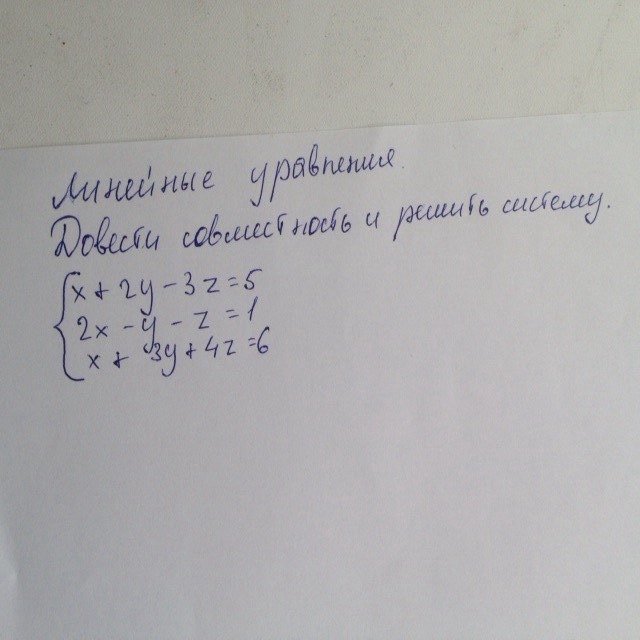 Линейные уравнения.
Довести совместность и решить систему.
x + 2y - 3z = 5
2x - y - z = 1
x + 3y + 4z = 6